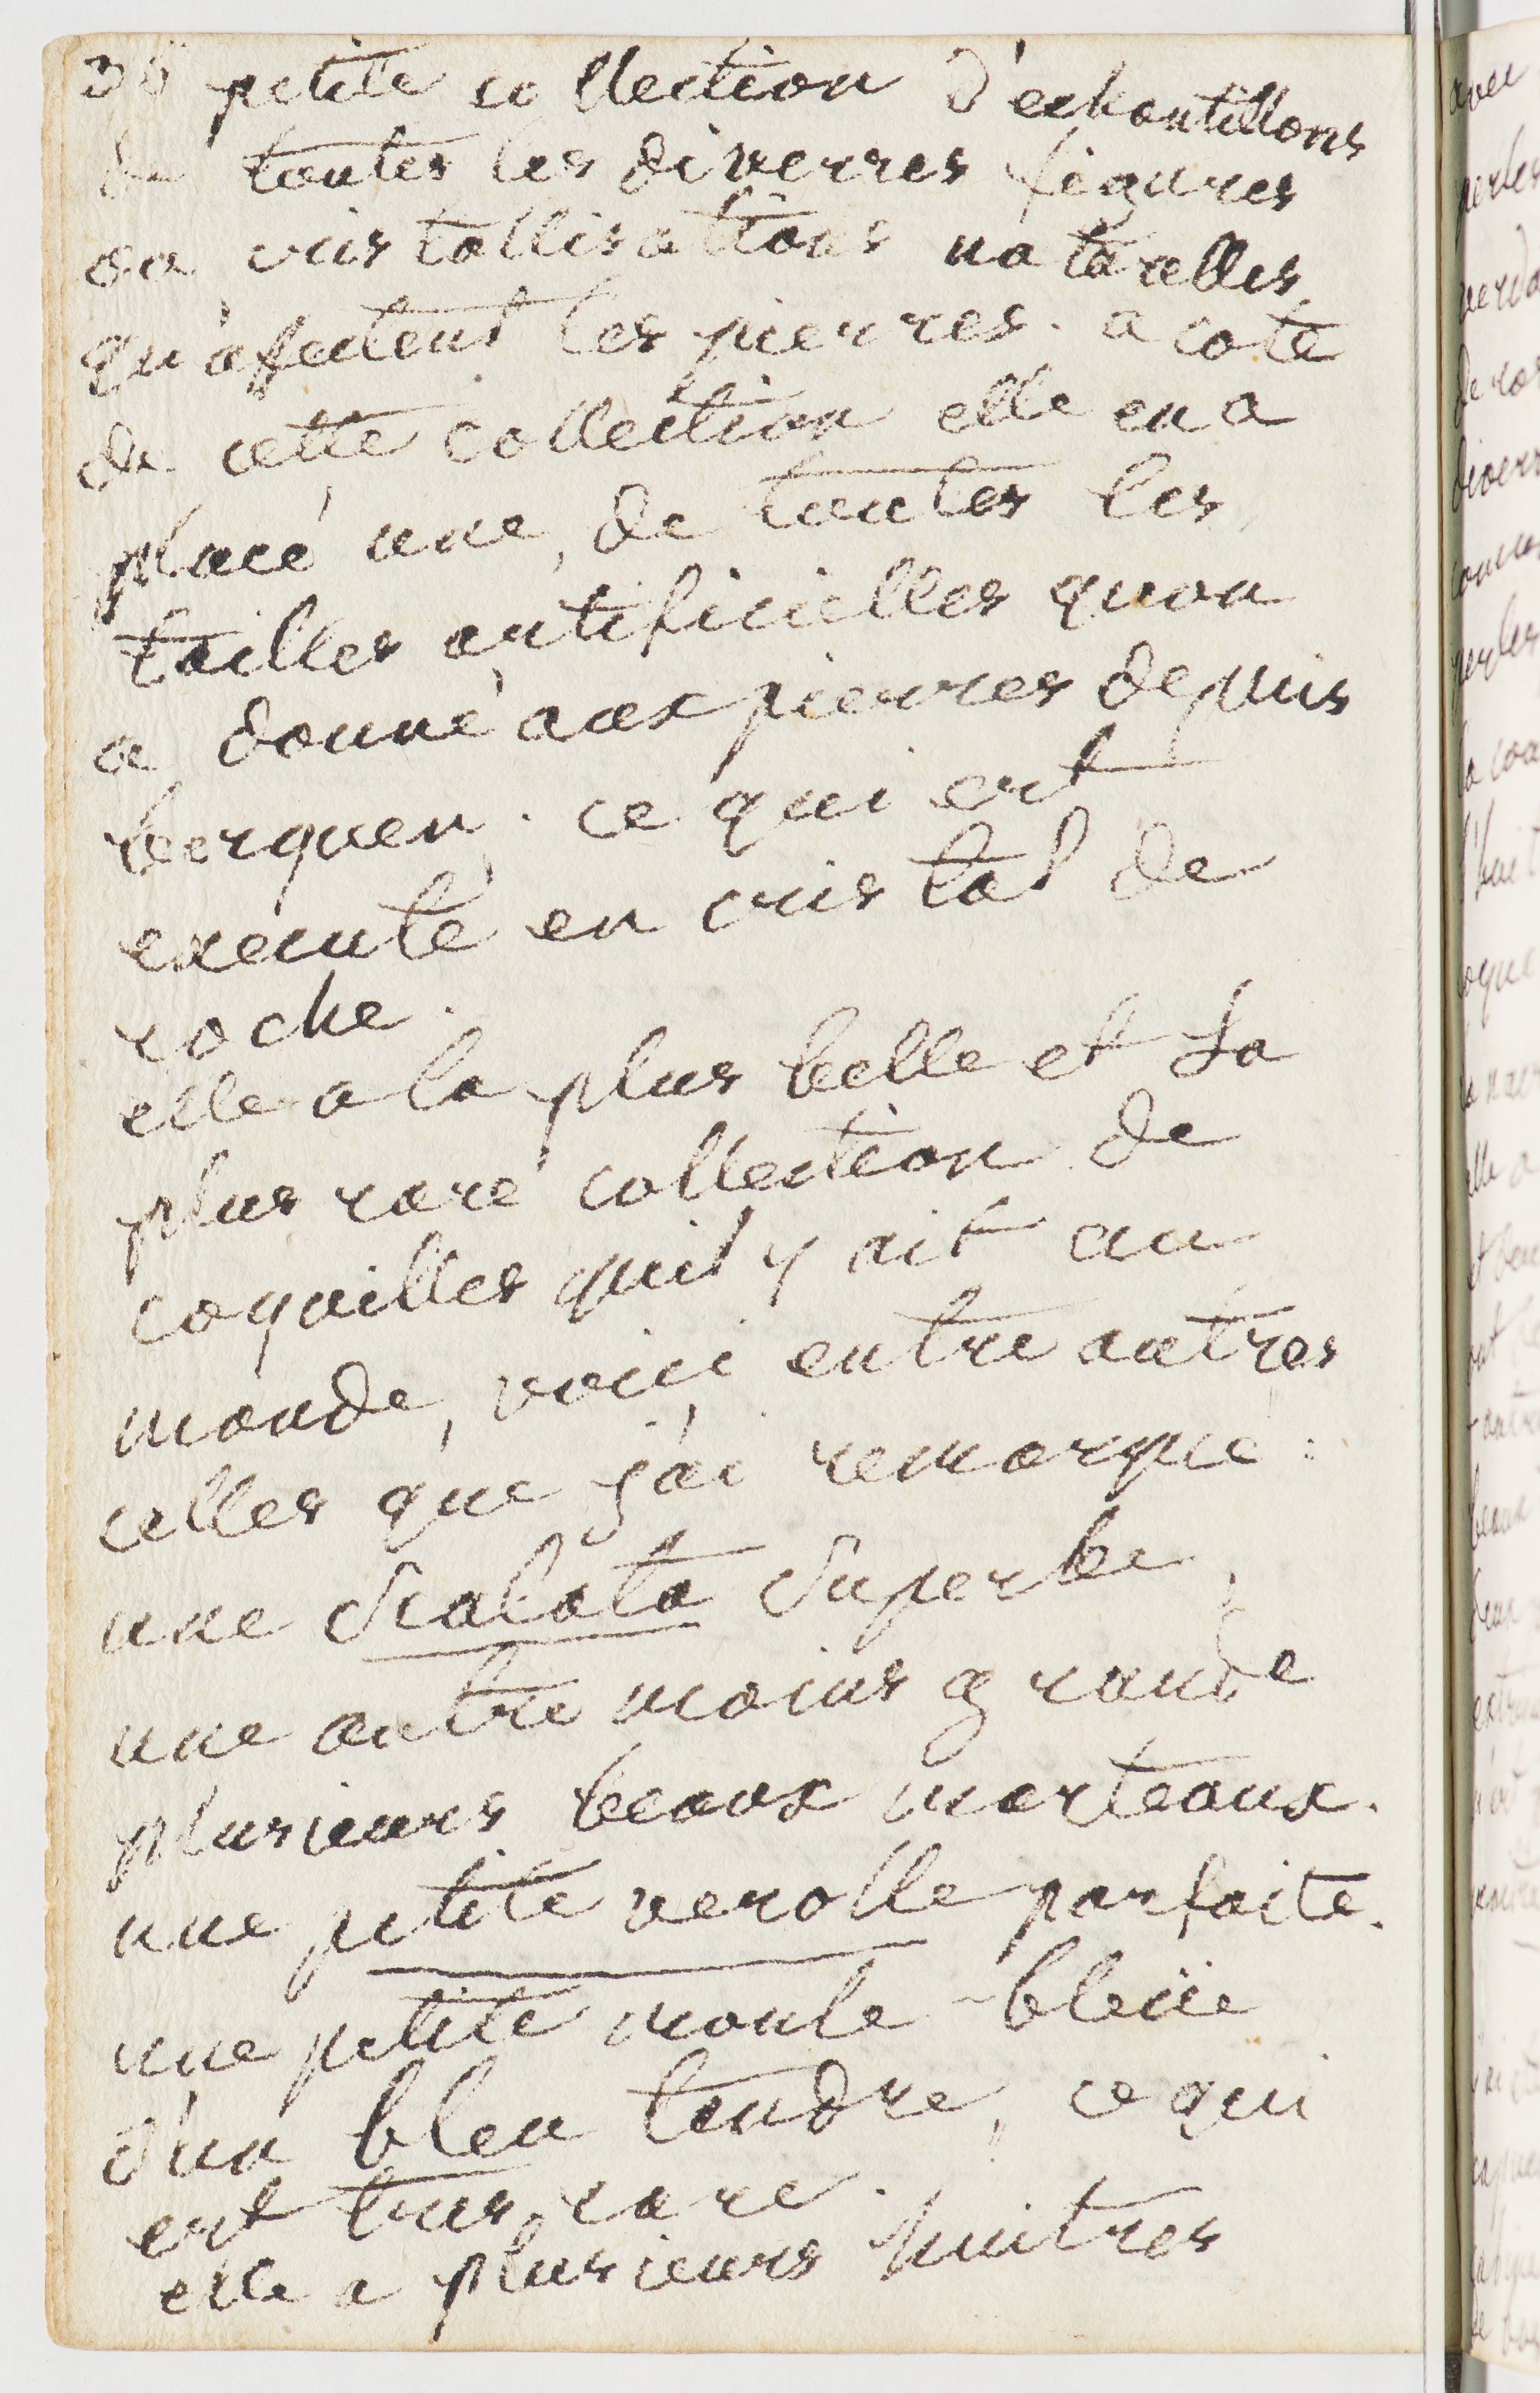 petite collection d'echantillons
de toutes les diverses figures
ou cristallisations naturelles
qu'affectent les pierres. a coté
de cette collection elle en a
placé une, de toutes les
tailles artificielles quon
a donné aux pierres depuis
berquen. ce qui est
executé en cristal de
roche.
elle a la plus belle et la
plus rare collection de
coquilles quil y ait au
monde, voici entre autres
celles que j'ai remarqué:
une Scalata Superbe,
une autre moins grande
plusieurs beaux marteaux.
une petite verolle parfaite.
une petite moule bleüe
d'un bleu tendre, ce qui
est tres rare.
elle a plusieurs huitres